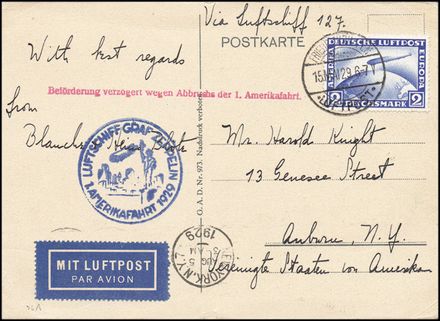 Via Luftschiff 127.
POSTKARTE
With best regards
from
Beförderung verzogert wegen Abbruchs der 1. Amerikafahrt.
DEUTSCHE LUFTPOST
AMERIKA
EUROPA
2 REICHSMARK 2
LUFTSCHIFF GRAF ZEPPELIN
1. AMERIKAFAHRT 1929
G. A. D. Nr. 973 Nachdruck verboten
Mr. Harold Knight
13 Genesee Street
Auburn, N. Y.
Vereinigte Staaten von Amerika
NEW YORK, N.Y.
AUG 5
AM
1929
MIT LUFTPOST
PAR AVION